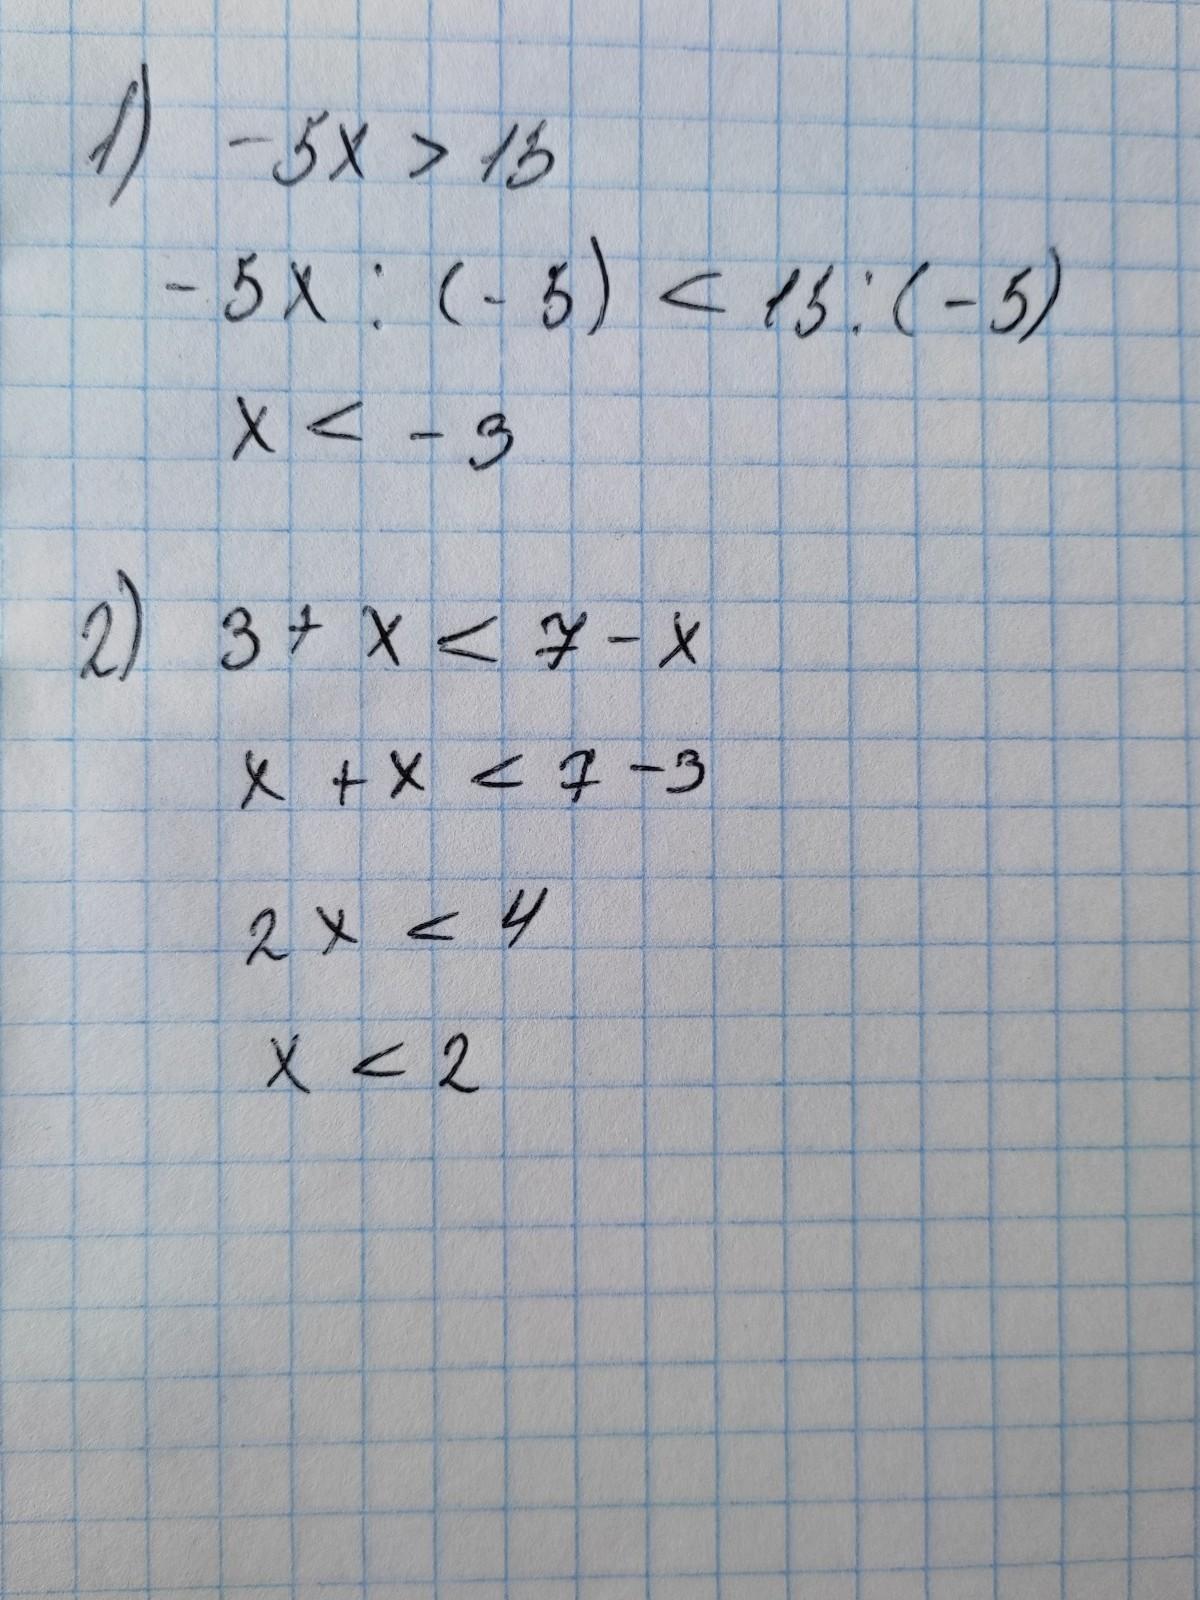 1) -5x > 15
-5x : (-5) < 15 : (-5)
x < -3
2) 3 + x < 7 - x
x + x < 7 - 3
2x < 4
x < 2